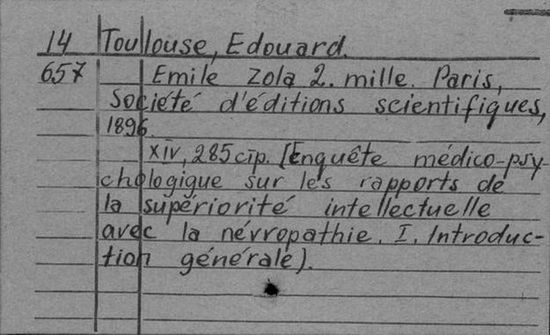 14 Toulouse, Edouard.
657 Emile Zola 2. mille. Paris,
Société d'éditions scientifiques,
1896
XIV, 285 стр. [Enquête médico-psy-
chologique sur les rapports de
la supériorité intellectuelle
avec la névropathie. I. Introduc-
tion générale).